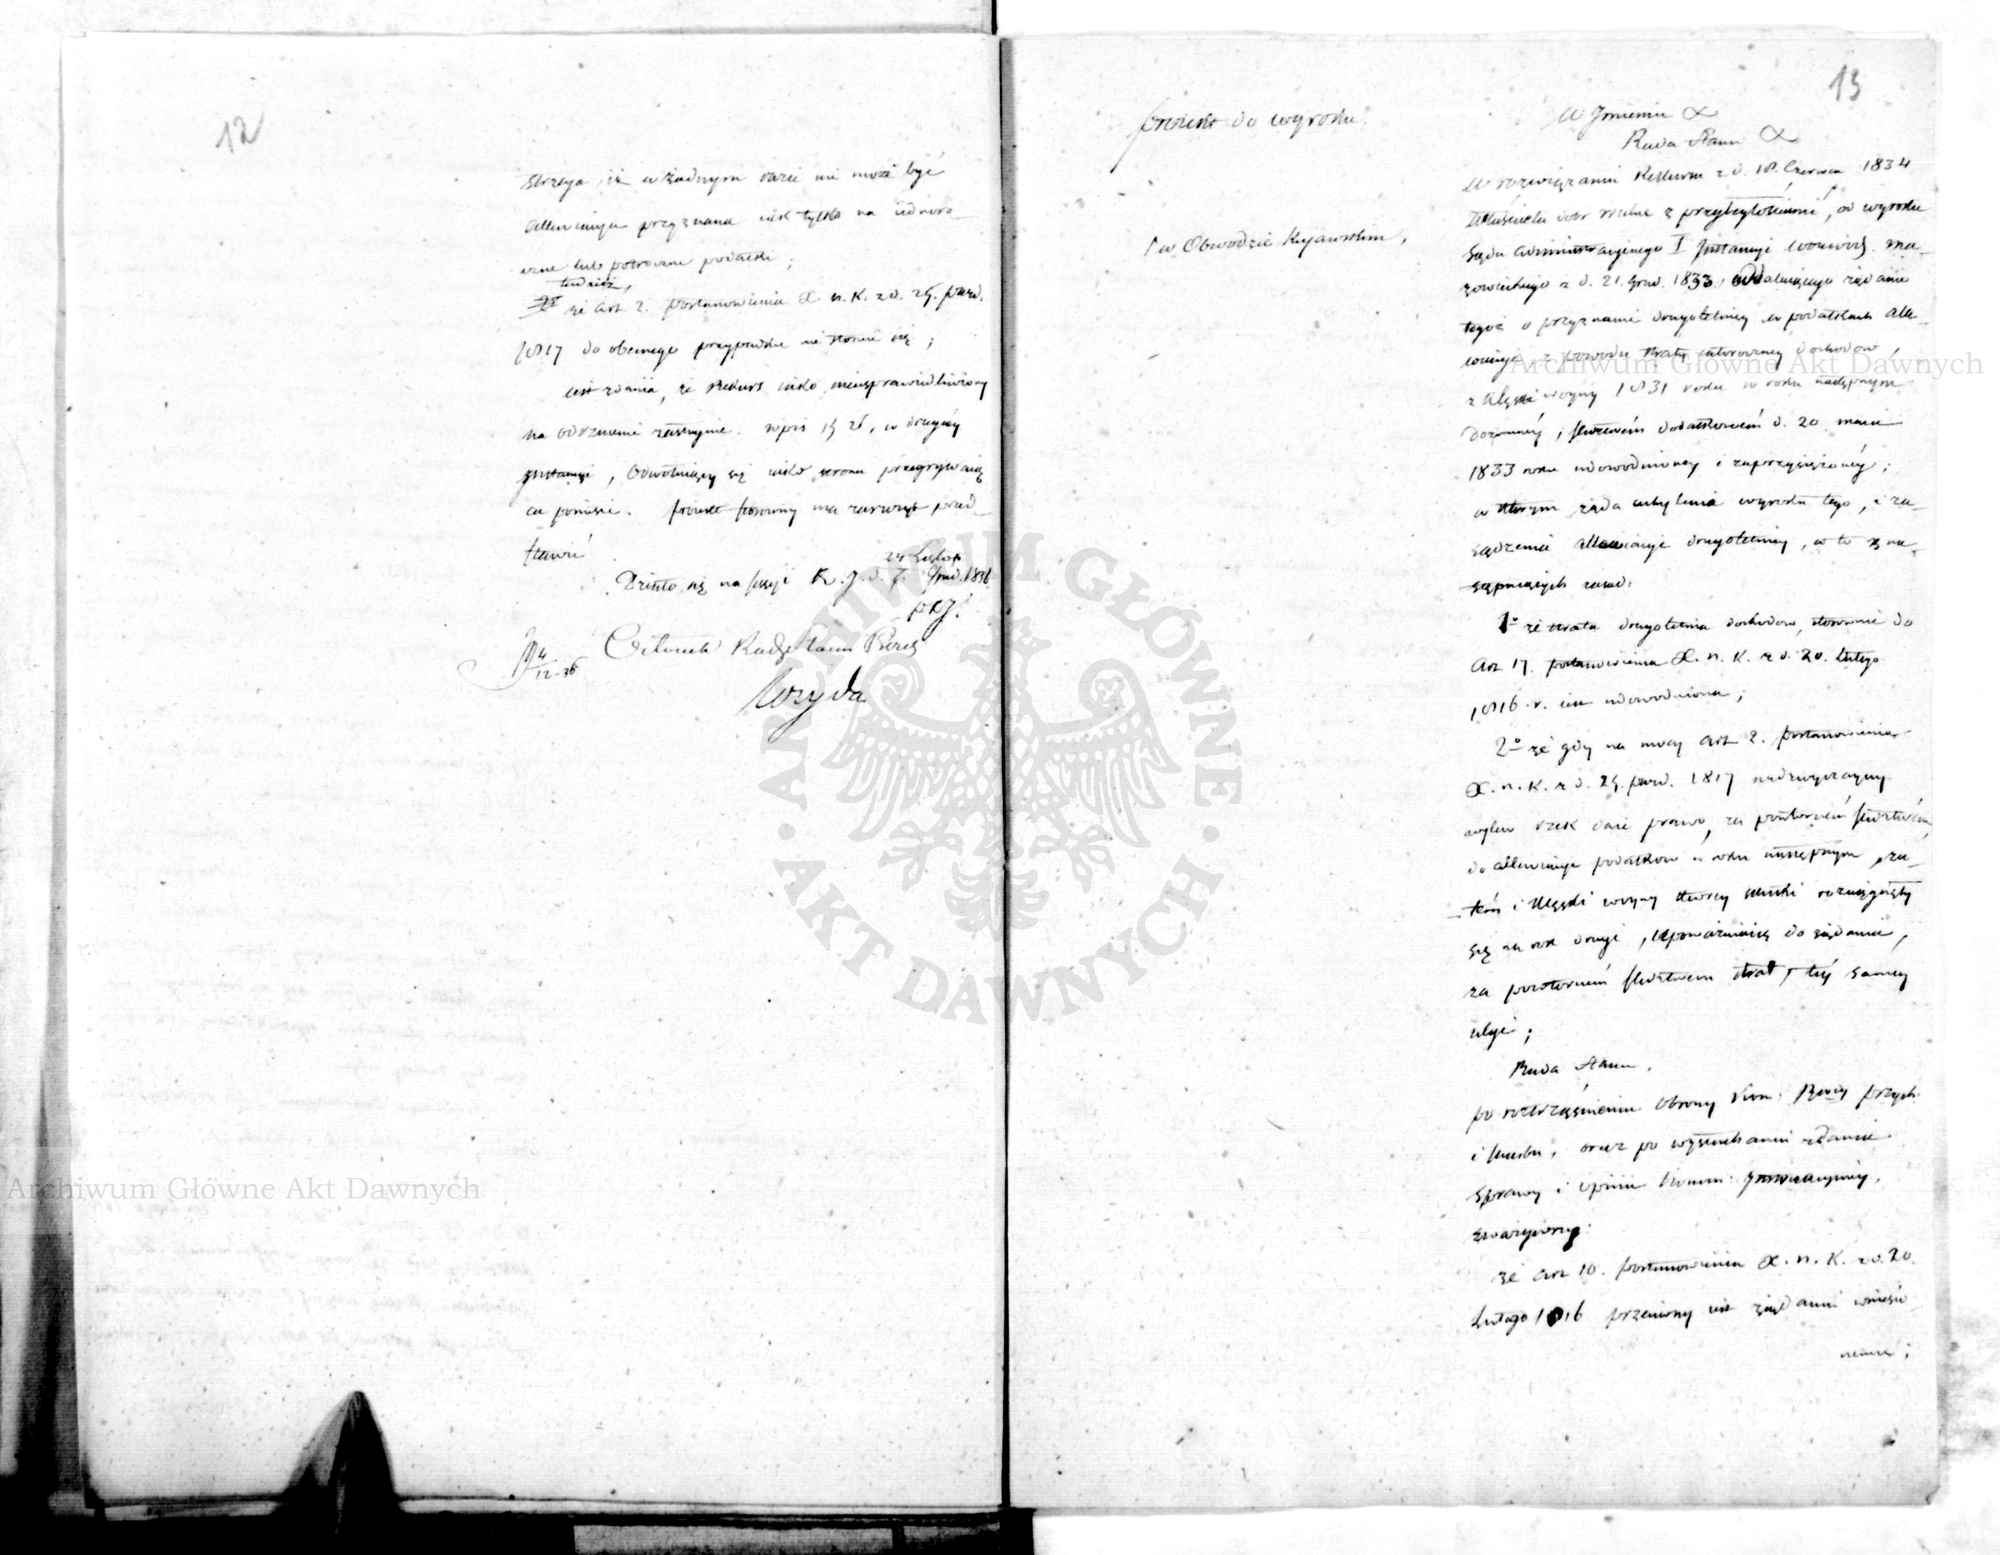 12
strzega, iż w żadnym razie nie może być
allewiacya przyznana jak tylko na jednoro-
czne lub potroczne podatki;
tudzież,
że art 2. postanowienia X. n. K. z d. 25. paźd.
1817 do obecnego przypadku nie stosuie się;
iest zdania, że Rekurs iako nieusprawiedliwiony
na odrzucenie zasługuie. wpis 15 zł, w drugiey
Instancyi, odwołuiący się iako strona przegrywaią-
ca poniesie. Proiekt stosowny ma zaszczyt przed-
stawić
24 Listop.
Działo się na sessyi K. J. d. Grud. 1836
Członek Rady Stanu Prezes
Wozyda
4/12-36
13
proiekt do wyroku.
W Imieniu
Rada Stanu
W rozwiązaniu Rekursu z d. 18. Czerwca 1834
Właściciela dóbr z przyległościami, od wyroku
w Obwodzie Kujawskim,
Sądu administracyinego I Instancyi Woiewódz. Ma-
zowieckiego z d. 21. Grud. 1833 oddalaiącego żądanie
tegoż o przyznanie drugoletniey w podatkach alle-
wiacyi z powodu straty dochodów,
z klęski woyny 1831 roku w roku następnym
doznaney, śledztwem dodatkowém d. 20 maia
1833 roku udowodnioney i zaprzysiężoney;
w którym żąda uchylenia wyroku tego, i za-
sądzenia allewiacyi drugoletniey, w to z na-
stępuiących zasad:
1o że strata drugoletnia dochodów, stosownie do
Art 17. postanowienia X. n. K. z d. 20. Lutego
1816 r. iest udowodniona;
2o że gdy na mocy art 2. postanowienia
X. n. K. z d. 25. paźd. 1817 nadzwyczayny
wylew rzek daie prawo, za powtórném śledztwém,
do allewiacyi podatków w roku następnym, za-
tém i klęski woyny których skutki rozciągnęły
się na rok drugi, upoważniaią do żądania,
za powtórném śledztwem strat, téy samey
ulgi;
Rada Stanu,
po roztrząśnieniu obrony Kom: Rząd: przych.
i skarbu, oraz po wysłuchaniu zdania
sprawy i opinii Komm: Instrukcyiney,
zważywszy:
że art 10. postanowienia X. n. K. z d. 20.
Lutego 1816 przeciwny iest żądaniu wniesio-
nemu;
Archiwum Główne Akt Dawnych
Archiwum Główne Akt Dawnych
ARCHIWUM GŁÓWNE · AKT DAWNYCH ·